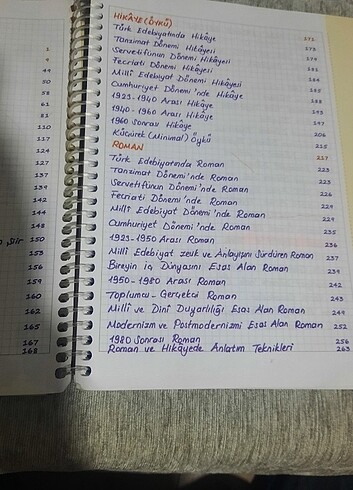 1
9
44
50
58
61
81
110
117
124
127
137
139
142
144
148
Şiir 150
153
156
159
160
162
165
167
168
HİKÂYE (ÖYKÜ)
Türk Edebiyatında Hikâye 171
Tanzimat Dönemi Hikâyesi 173
Servetifünun Dönemi Hikâyesi 179
Fecriati Dönemi Hikâyesi 181
Millî Edebiyat Dönemi Hikâyesi
Cumhuriyet Dönemi'nde Hikâye 185
1923-1940 Arası Hikâye 188
1940-1960 Arası Hikâye 193
1960 Sonrası Hikâye 197
Küçürek (Minimal) Öykü 206
215
ROMAN 217
Türk Edebiyatında Roman 223
Tanzimat Dönemi'nde Roman 223
Servetifünun Dönemi'nde Roman 226
Fecriati Dönemi'nde Roman 229
Millî Edebiyat Dönemi'nde Roman 229
Cumhuriyet Dönemi'nde Roman 235
1923-1950 Arası Roman 236
Millî Edebiyat zevk ve Anlayışını Sürdüren Roman 237
Bireyin iç Dünyasını Esas Alan Roman 239
1950-1980 Arası Roman 242
Toplumcu-Gerçekçi Roman 243
Millî ve Dinî Duyarlılığı Esas Alan Roman 249
Modernizm ve Postmodernizmi Esas Alan Roman 252
1980 Sonrası Roman 256
Roman ve Hikâyede Anlatım Teknikleri 263